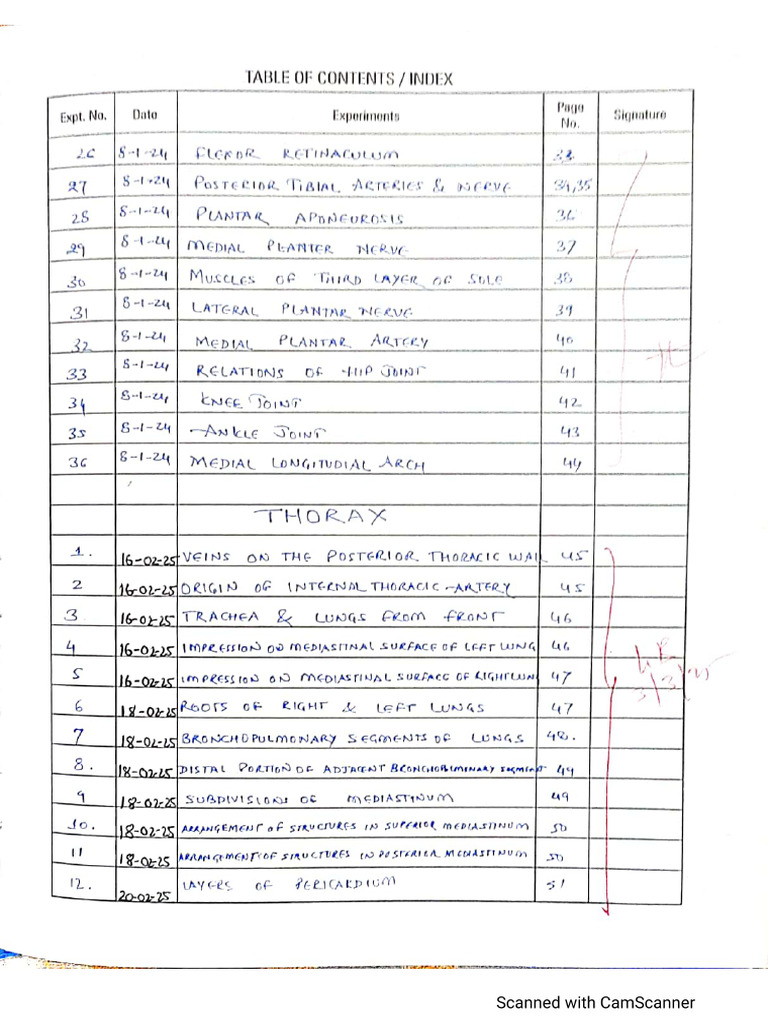 TABLE OF CONTENTS / INDEX
Expt. No. Date Experiments Page No. Signature
26 8-1-24 FLEXOR RETINACULUM 33
27 8-1-24 POSTERIOR TIBIAL ARTERIES & NERVE 34,35
28 8-1-24 PLANTAR APONEUROSIS 36
29 8-1-24 MEDIAL PLANTER NERVE 37
30 8-1-24 MUSCLES OF THIRD LAYER OF SOLE 38
31 8-1-24 LATERAL PLANTAR NERVE 39
32 8-1-24 MEDIAL PLANTAR ARTERY 40
33 8-1-24 RELATIONS OF HIP JOINT 41
34 8-1-24 KNEE JOINT 42
35 8-1-24 ANKLE JOINT 43
36 8-1-24 MEDIAL LONGITUDIAL ARCH 44
THORAX
1. 16-02-25 VEINS ON THE POSTERIOR THORACIC WALL 45
2 16-02-25 ORIGIN OF INTERNAL THORACIC ARTERY 45
3 16-02-25 TRACHEA & LUNGS FROM FRONT 46
4 16-02-25 IMPRESSION ON MEDIASTINAL SURFACE OF LEFT LUNG 46
5 16-02-25 IMPRESSION ON MEDIASTINAL SURFACE OF RIGHT LUNG 47
6 18-02-25 ROOTS OF RIGHT & LEFT LUNGS 47
7 18-02-25 BRONCHOPULMONARY SEGMENTS OF LUNGS 48.
8. 18-02-25 DISTAL PORTION OF ADJACENT SEGMENT 49
9 18-02-25 SUBDIVISIONS OF MEDIASTINUM 49
10. 18-02-25 ARRANGEMENT OF STRUCTURES IN SUPERIOR MEDIASTINUM 50
11 18-02-25 ARRANGEMENT OF STRUCTURES IN POSTERIOR MEDIASTINUM 50
12. 20-02-25 LAYERS OF PERICARDIUM 51
3/3/25
Scanned with CamScanner